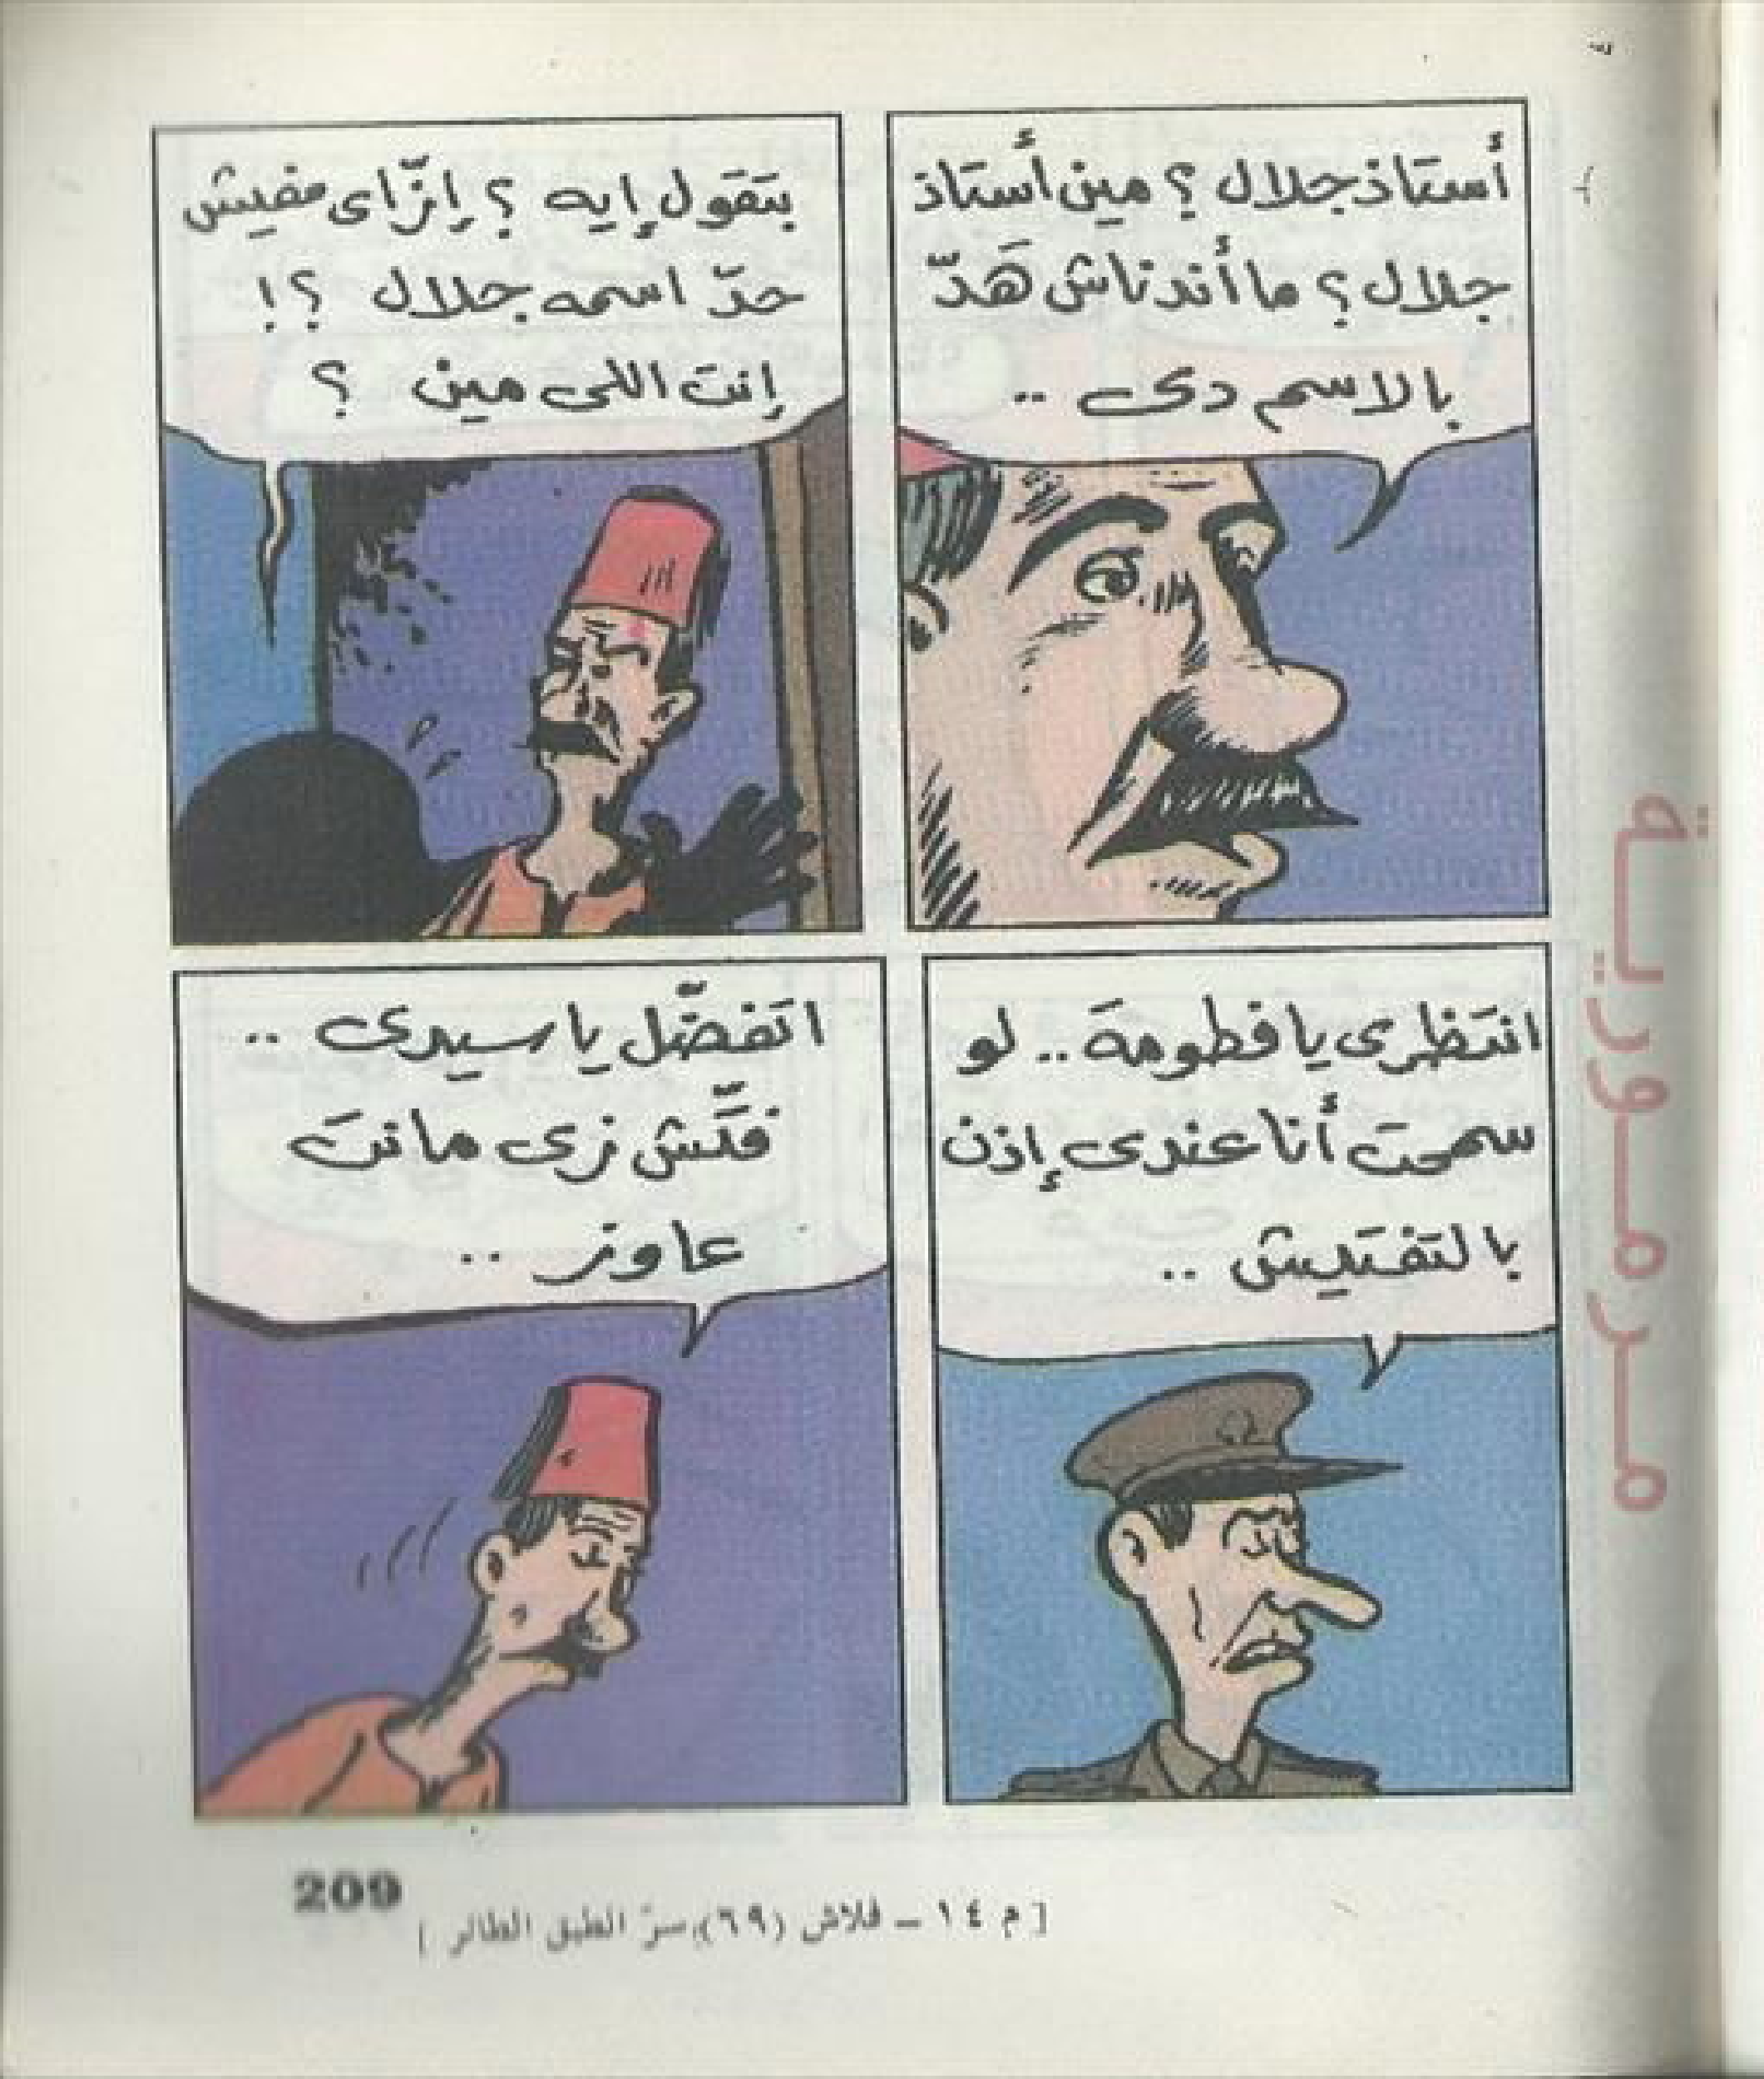 أستاذ جلال ؟ مين أستاذ
جلال ؟ ما أندناش هَدّ
بالاسم دى ..
بتقول إيه ؟ إزّاى مفيش
حدّ اسمه جلال ؟!
إنت اللى مين ؟
انتظرى يا فطومة .. لو
سمحت أنا عندى إذن
بالتفتيش ..
اتفضّل يا سيدى ..
فتّش زى ما نت
عاوز ..
209
[ م ١٤ – فلاش (٦٩) سرّ الطبق الطائر ]
مرمورية